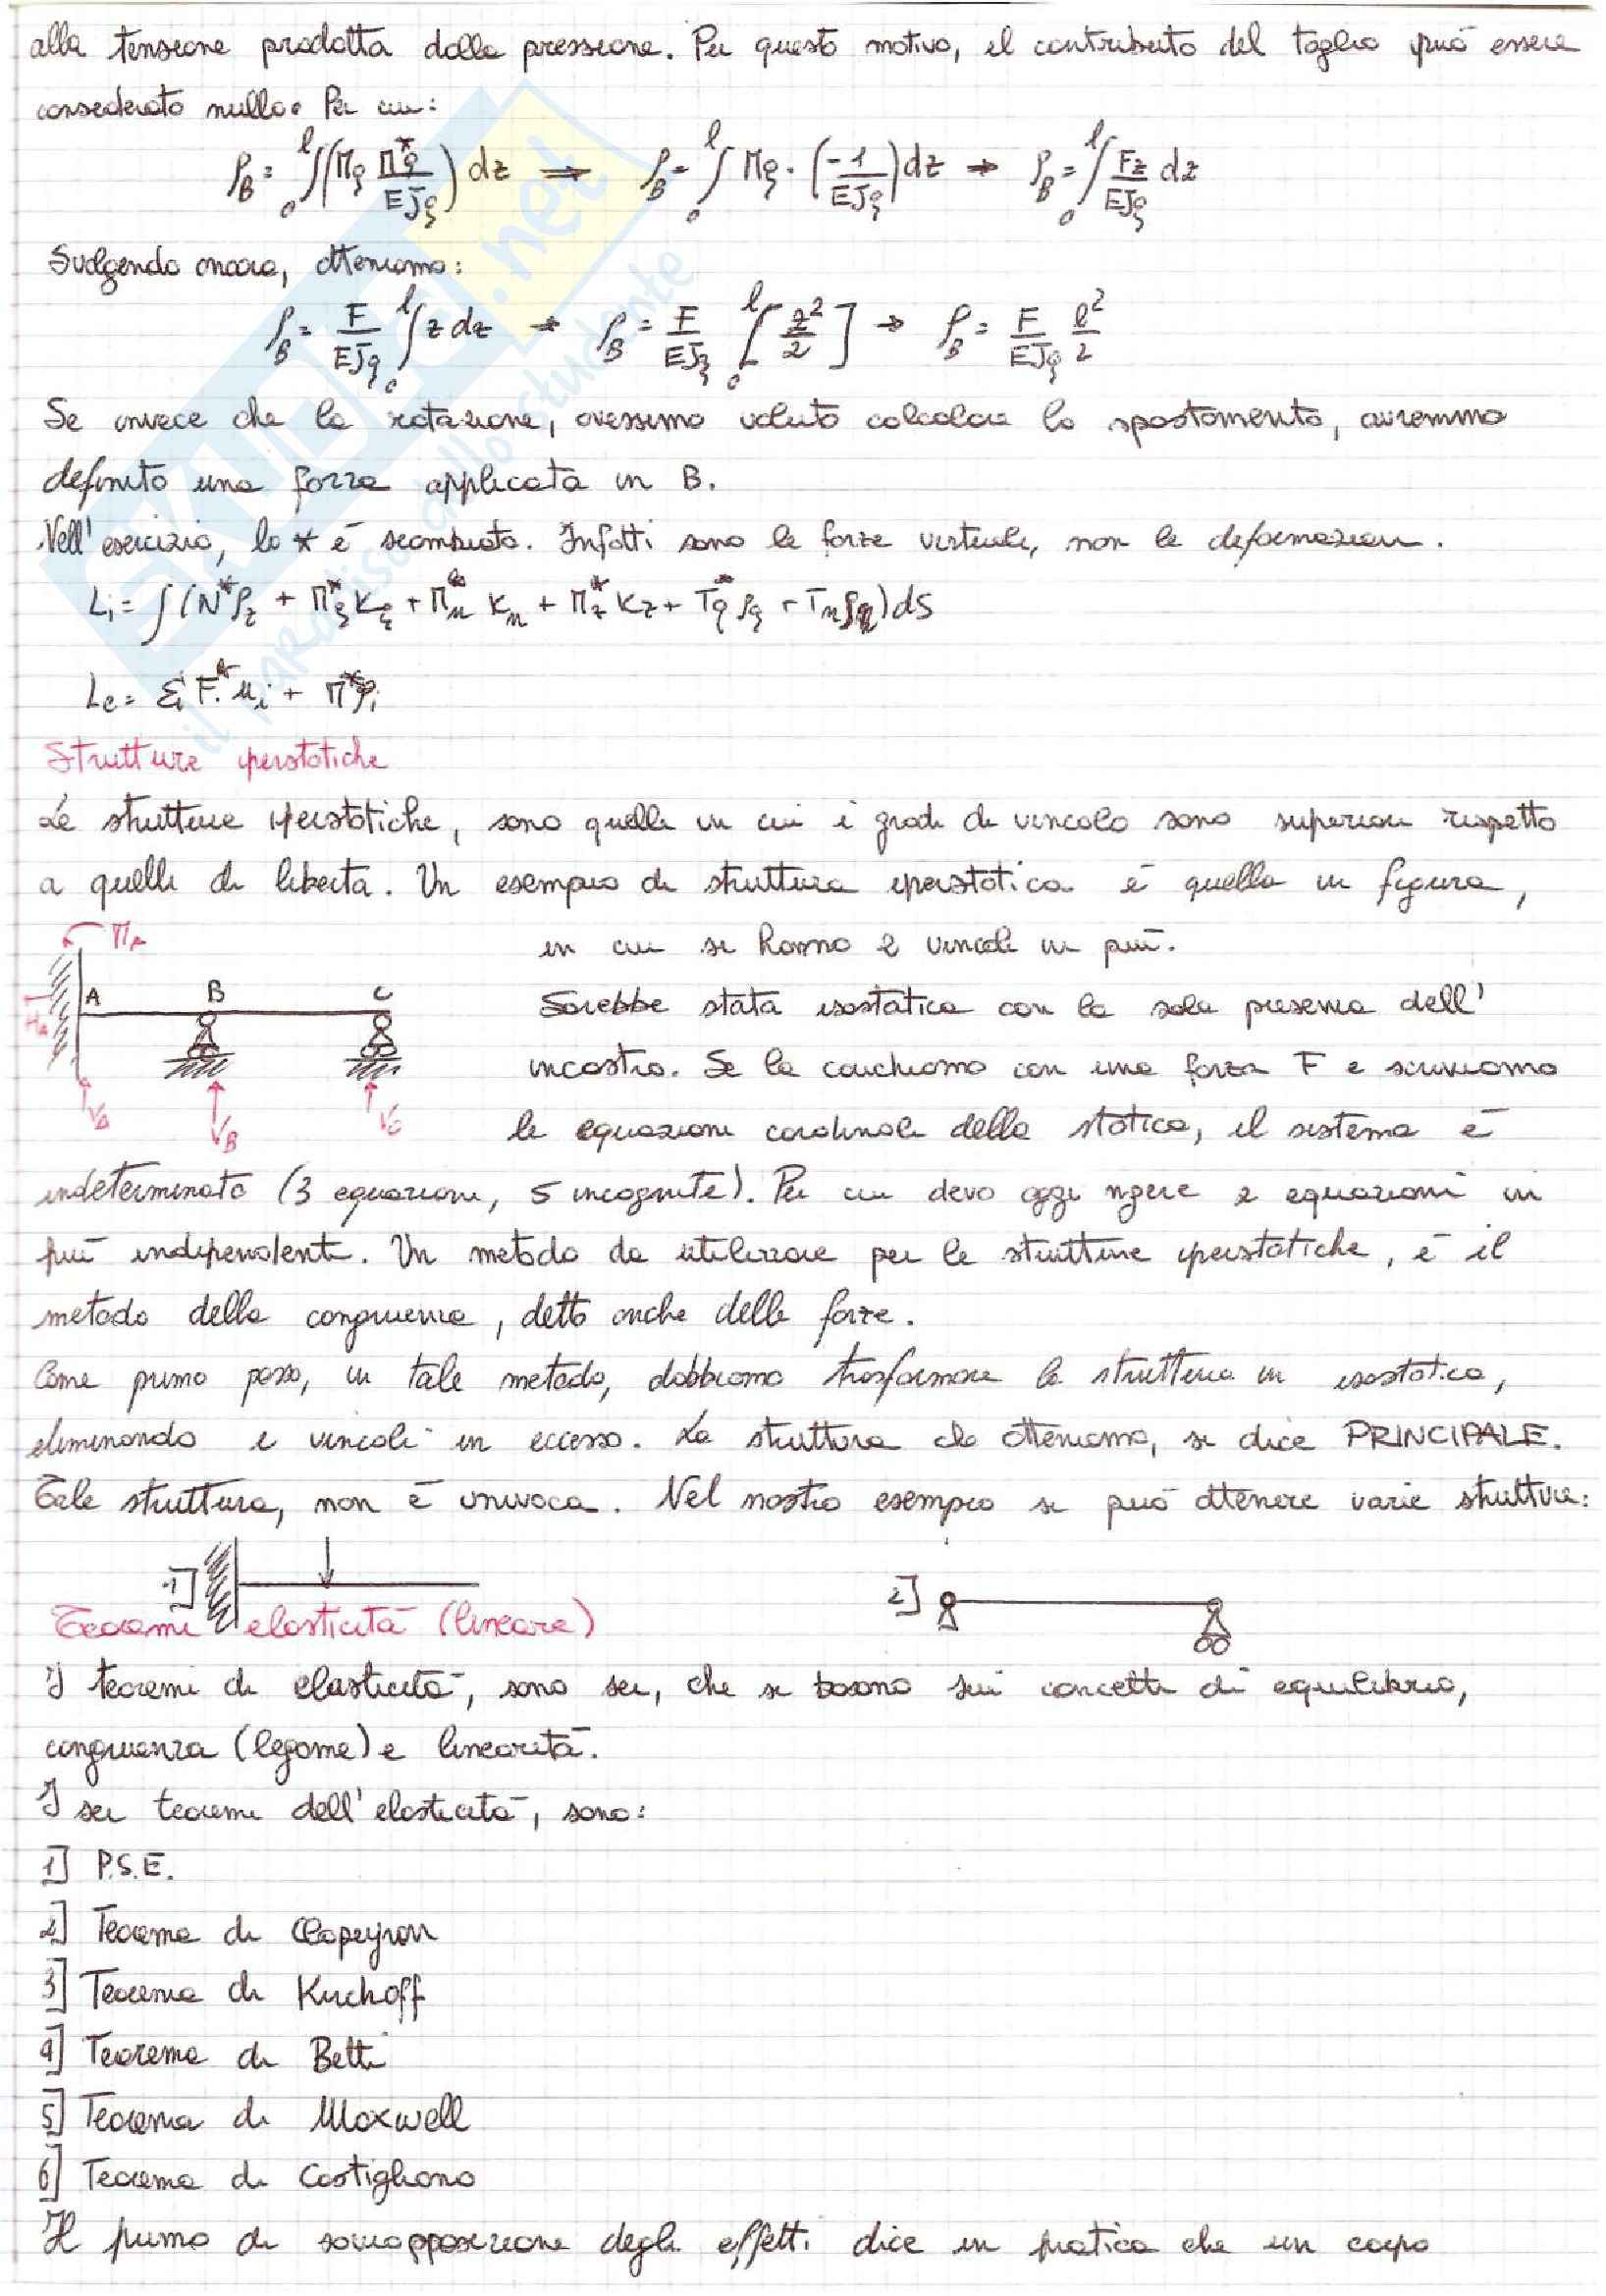 alla tensione prodotta dalla pressione. Per questo motivo, il contributo del taglio può essere
considerato nullo. Per cui:
φ_B = ∫₀ˡ (M_ξ M*_ξ / EJ_ξ) dz ⇒ φ_B = ∫₀ˡ M_ξ · (-1 / EJ_ξ) dz → φ_B = ∫₀ˡ Fz / EJ_ξ dz
Svolgendo ancora, otteniamo:
φ_B = F / EJ_ξ ∫₀ˡ z dz → φ_B = F / EJ_ξ ₀ˡ[z² / 2] → φ_B = F / EJ_ξ l² / 2
Se invece che la rotazione, avessimo voluto calcolare lo spostamento, avremmo
definito una forza applicata in B.
Nell'esercizio, lo * è scambiato. Infatti sono le forze virtuali, non le deformazioni.
Li = ∫ (N* ρ_z + M*_ξ K_ξ + M*_η K_η + M*_z K_z + T*_ξ ρ_ξ + T_η ρ_η) dS
Le = Σi F* u_i + M* φ_i
Strutture iperstatiche
Le strutture iperstatiche, sono quelle in cui i gradi di vincolo sono superiori rispetto
a quelli di liberta. Un esempio di struttura iperstatica è quella in figura,
in cui si hanno 2 vincoli in più.
M_A
A B C
H_A
V_A V_B V_C
Sarebbe stata isostatica con la sola presenza dell'
incastro. Se la carichiamo con una forza F e scriviamo
le equazioni cardinali della statica, il sistema è
indeterminato (3 equazioni, 5 incognite). Per cui devo aggiungere 2 equazioni in
più indipendenti. Un metodo da utilizzare per le strutture iperstatiche, è il
metodo della congruenza, detto anche delle forze.
Come primo passo, in tale metodo, dobbiamo trasformare la struttura in isostatica,
eliminando i vincoli in eccesso. La struttura che otteniamo, si dice PRINCIPALE.
Tale struttura, non è univoca. Nel nostro esempio si può ottenere varie strutture:
1] 2]
Teoremi elasticità (lineare)
I teoremi di elasticità, sono sei, che si basano sui concetti di equilibrio,
congruenza (legame) e linearità.
I sei teoremi dell'elasticità, sono:
1] P.S.E.
2] Teorema di Clapeyron
3] Teorema di Kirchoff
4] Teorema di Betti
5] Teorema di Maxwell
6] Teorema di Castigliano
Il primo di sovrapposizione degli effetti dice in pratica che un corpo
SKUOLA.net
il paradiso dello studente